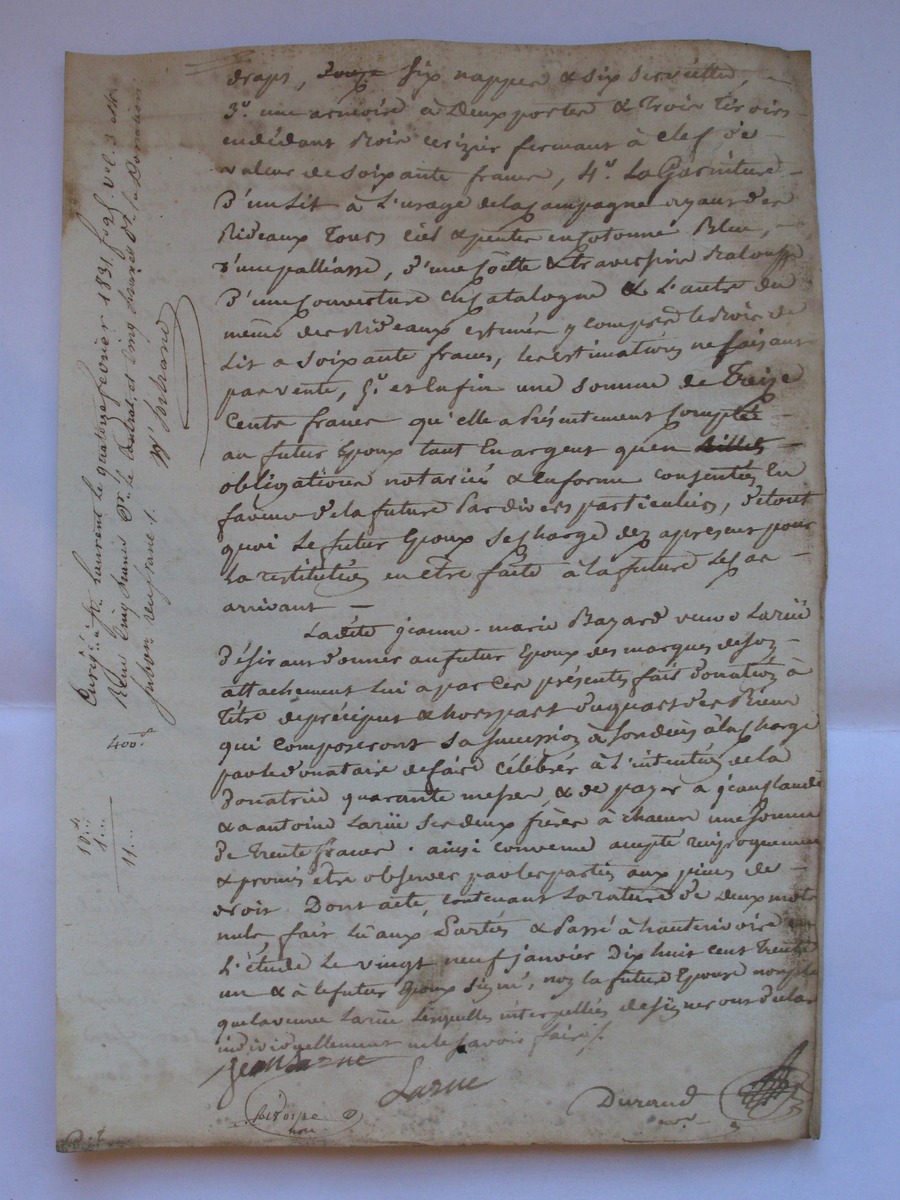 draps, six nappes & six serviettes,
3° une armoire a deux portes & trois tiroirs
endedans bois cerizier fermant à clef de
valeur de soixante francs, 4° La Garniture
d'un Lit à L'usage de la Campagne ayant des
Rideaux Tours ciel & pentes en cotonne Bleu,
d'une palliasse, d'une & traversin
d'une couverture Catalogne & L'autre du
même des Rideaux estimés y compris le bois de
Lit a soixante francs, les estimations ne faisant
pas vente, 5° et Enfin une somme de Treize
Cents francs qu'elle a Présentement Comptée
au futur Epoux tant En argent qu'en billets
obligations notariés & enforme consenties En
faveur de la future Par divers particuliers, de tout
quoi Le futur Epoux se charge dez apresent pour
La restitution en être faite à la future Le cas
arrivant
Ladite jeanne-marie Bazard veuve Larüe
désirant donner au futur Epoux des marques de son
attachement Lui a par ces présentes fait donation à
titre de préciput & hors part du quart des Biens
qui composeront sa sucession à son décès à la charge
par le donataire de faire célébrer à L'intention de la
donatrice quarante messes & de payer à jean claude
& a antoine Larüe ses deux frères à chacun une somme
de trente francs. ainsi convenu accepté reciproquement
& promis etre observé par les parties aux peines de
droit. Dont acte, contenant La rature de deux mots
nuls, fait Lu aux Parties & Passé à hauterivoire en
L'étude Le vingt neuf janvier Dix huit cent Trente
un & à le futur Epoux signé, non la future Epouse non plus
que la veuve Larüe Lesquelles interpellées de signer ont declaré
individuellement ne le savoir faire.
Jean Larue
Larue
Durand
Enrég. à St Laurent le quatorze février 1831, f° 95 v° c. 3 &
Reçu cinq francs pr. le contrat et cinq francs pr. la Donation
subvon. un franc 1.
Durand
400.
10..
1..
11...